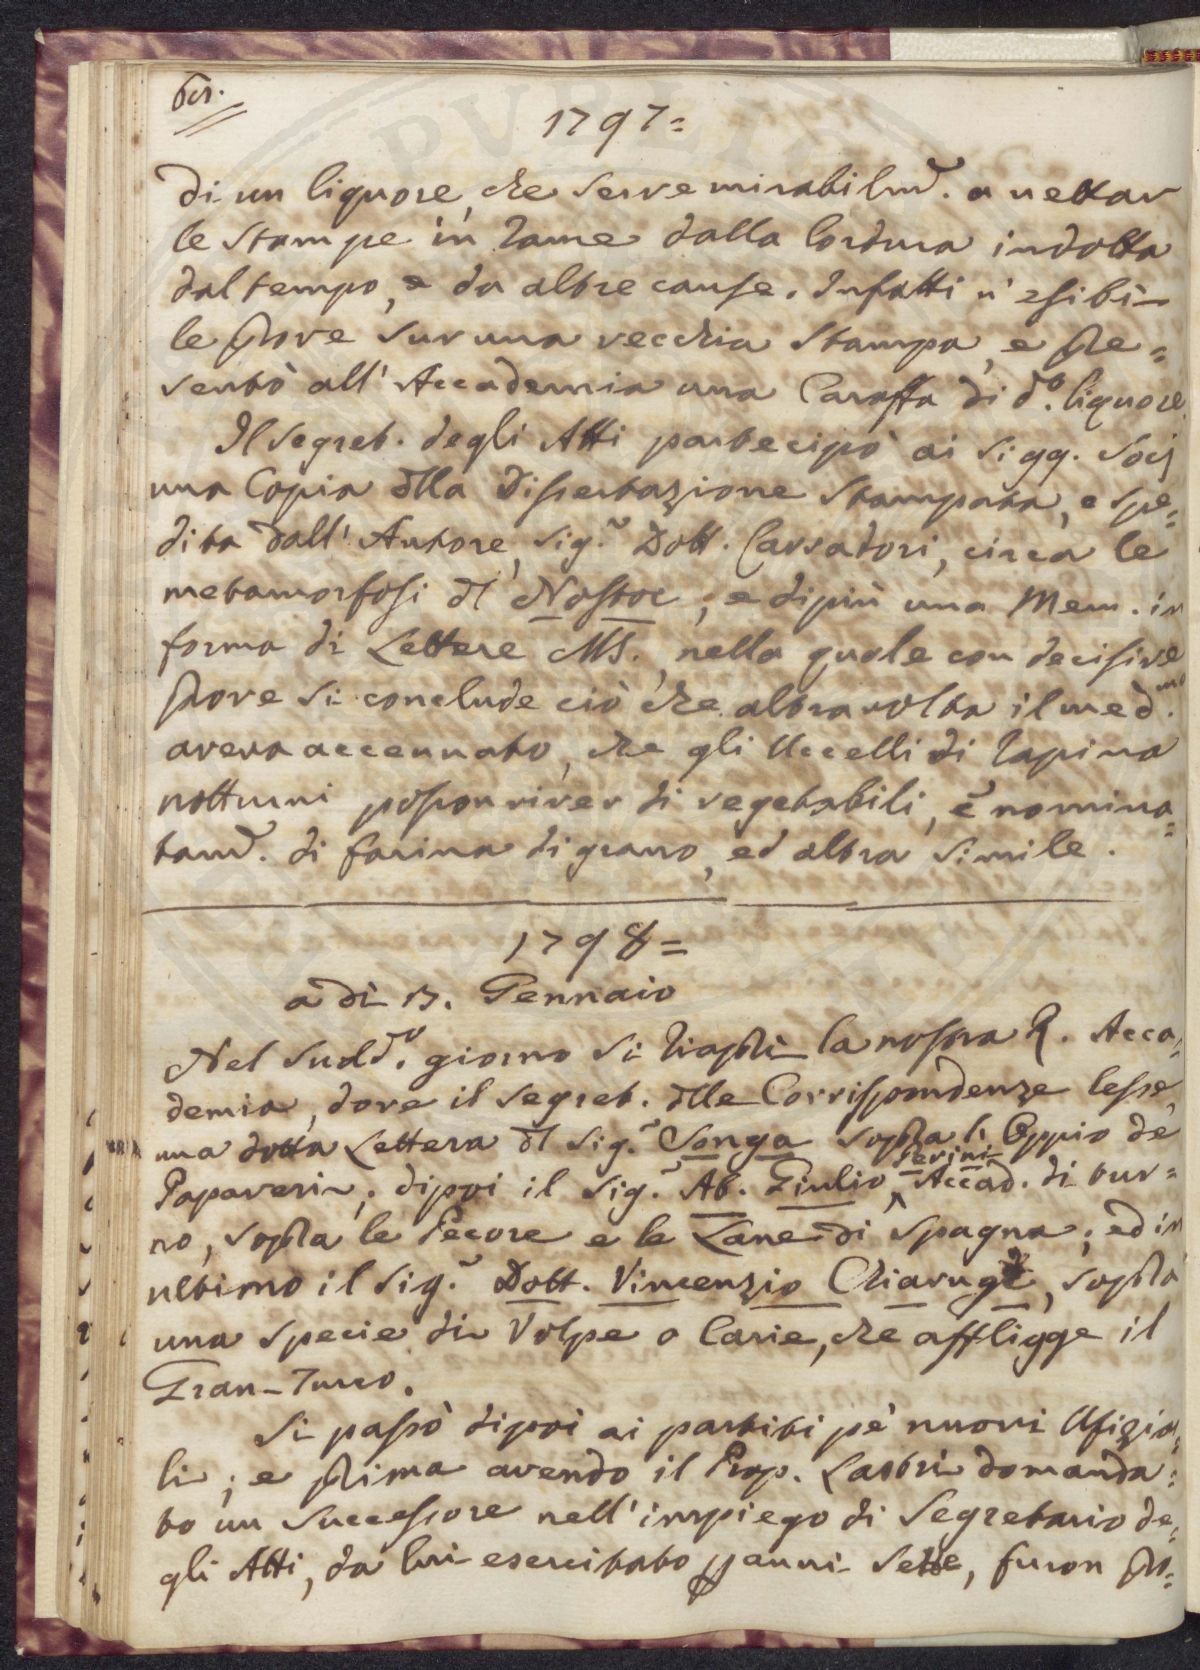 1797=
di un liquore, che serve mirabilmẽ. a nettar
le Stampe in rame dalla lordura indotta
dal tempo, e da altre cause. Infatti n'esibì
le prove sur una vecchia Stampa, e pre=
sentò all'Accademia una Caraffa di dº. liquore.
Il Segret. degli Atti partecipò ai Sigg. Socj
una Copia dlla Dissertazione Stampata, e spe=
dita dall'Autore, Sig.r Dott. Carradori, circa le
metamorfosi dl Nostoc; e dipiù una Mem. in
forma di Lettere MS., nella quale con decisive
prove si conclude ciò che altra volta il med.mo
aveva accennato, che gli Uccelli di rapina
notturni posson viver di vegetabili, e nomina=
tamẽ. di farina di grano, ed altra simile.
1798=
a dì 13. Gennaio
Nel suddº. giorno si riaprì la nostra R. Acca=
demia, dove il Segret. dlle Corrispondenze lesse
una dotta Lettera dl Sig.r Songa sopra l'Oppio de'
Papaveri; dipoi il Sig.r Ab. Giulio Perini Accad. di tur=
no, sopra le Pecore e le Lane di Spagna; ed in
ultimo il Sig.r Dott. Vincenzio Chiarugi, sopra
una specie di Volpe o Carie, che affligge il
Gran-Turco.
Si passò dipoi ai partiti pe' nuovi Ufizia=
li; e prima avendo il Prop. Lastri domanda=
to un Successore nell'impiego di Segretario de=
gli Atti, da lui esercitato p anni sette, furon pro=